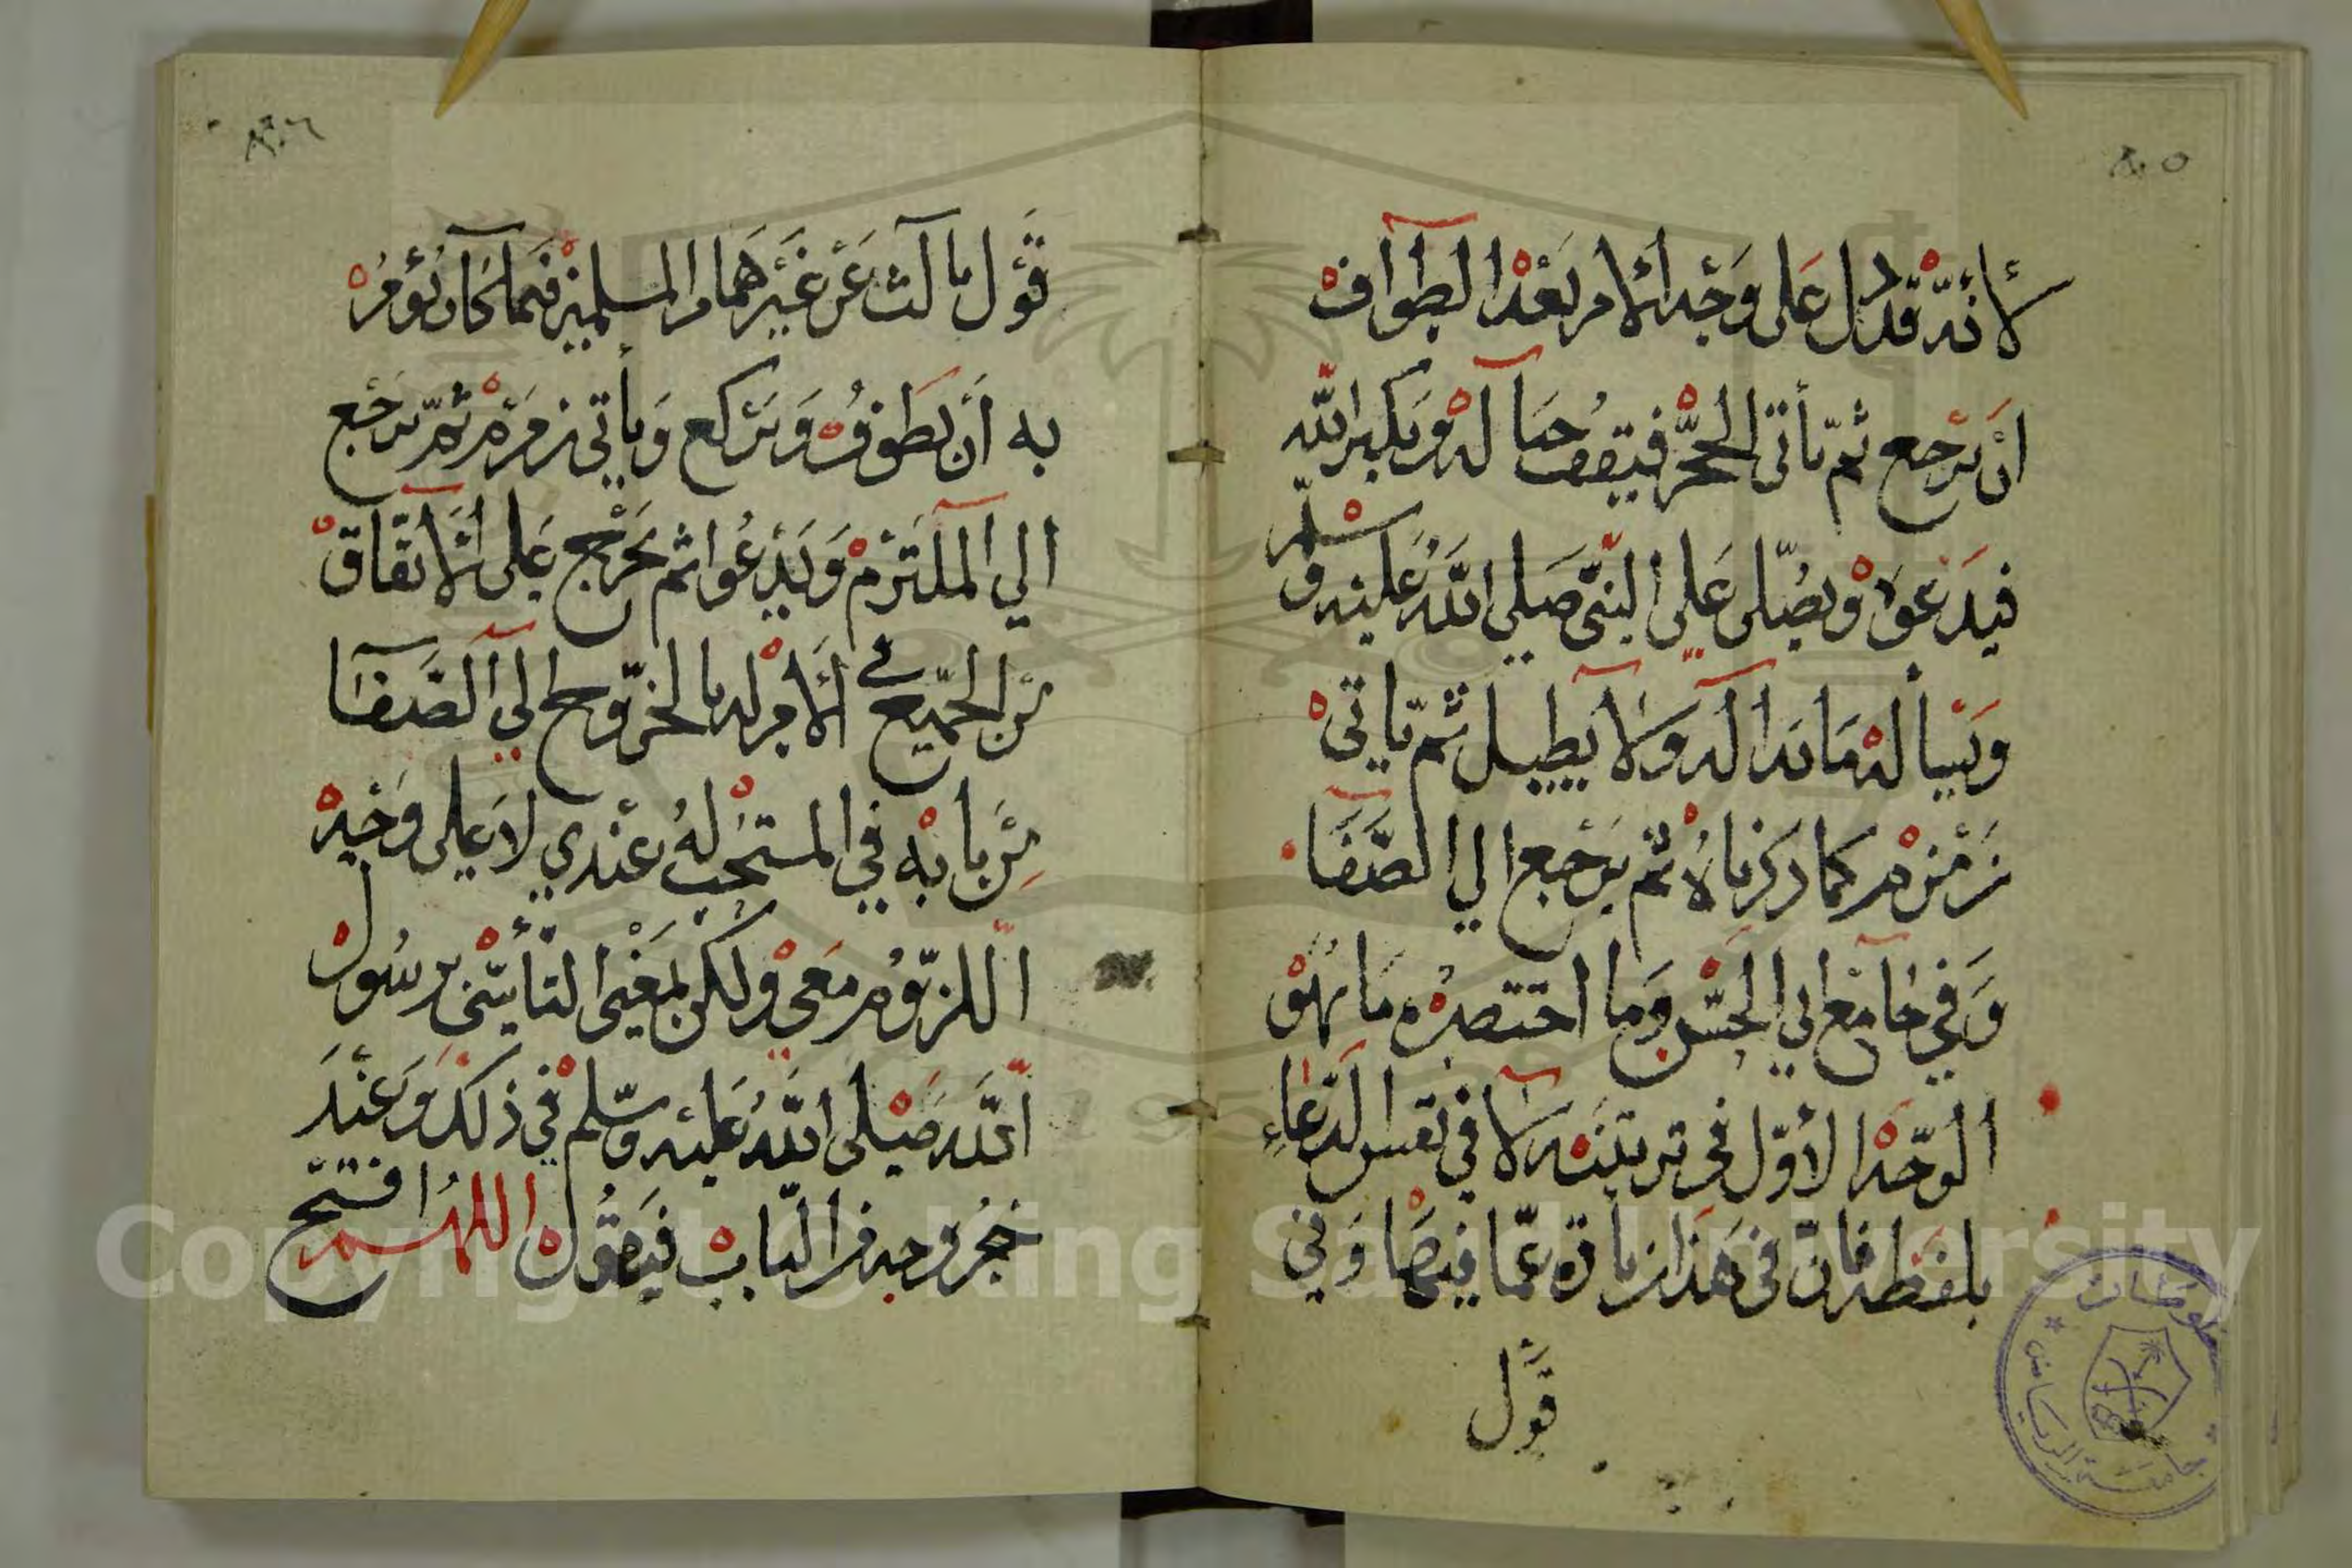 ٨٠٥
لأنه قد دل على وجه الأمر بعد الطواف
أن يرجع ثم يأتي الحجر فيقف حياله ويكبر الله
فيدعو ويصلي على النبي صلى الله عليه وسلم
ويسأله ما بدا له ولا يطيل ثم يأتي
زمزم كما ذكرناه ثم يرجع إلى الصفا
وفي جامع أبي الحسن وما اختصره ما نهو
الوجه الأول في تربيته لا في نفس الدعاء
بلفظه فإن في هذا زيادة عما فيها وفي
قول
٨٠٦
قول ثالث عن غيرهما من المسلمين فيما كان يؤمر
به أن يطوف ويركع ويأتي زمزم ثم يرجع
إلى الملتزم ويدعوا ثم يخرج على الاتفاق
من الجميع في الأمر له بالخروج إلى الصفا
من بابه في المستحب له عندي لا على وجه
اللزوم معي ولكن لمعنى التأسي برسول
الله صلى الله عليه وسلم في ذلك وعند
خروجه من الباب فيقول اللهم افتح
جامعة الرياض
Copyright © King Saud University
1957